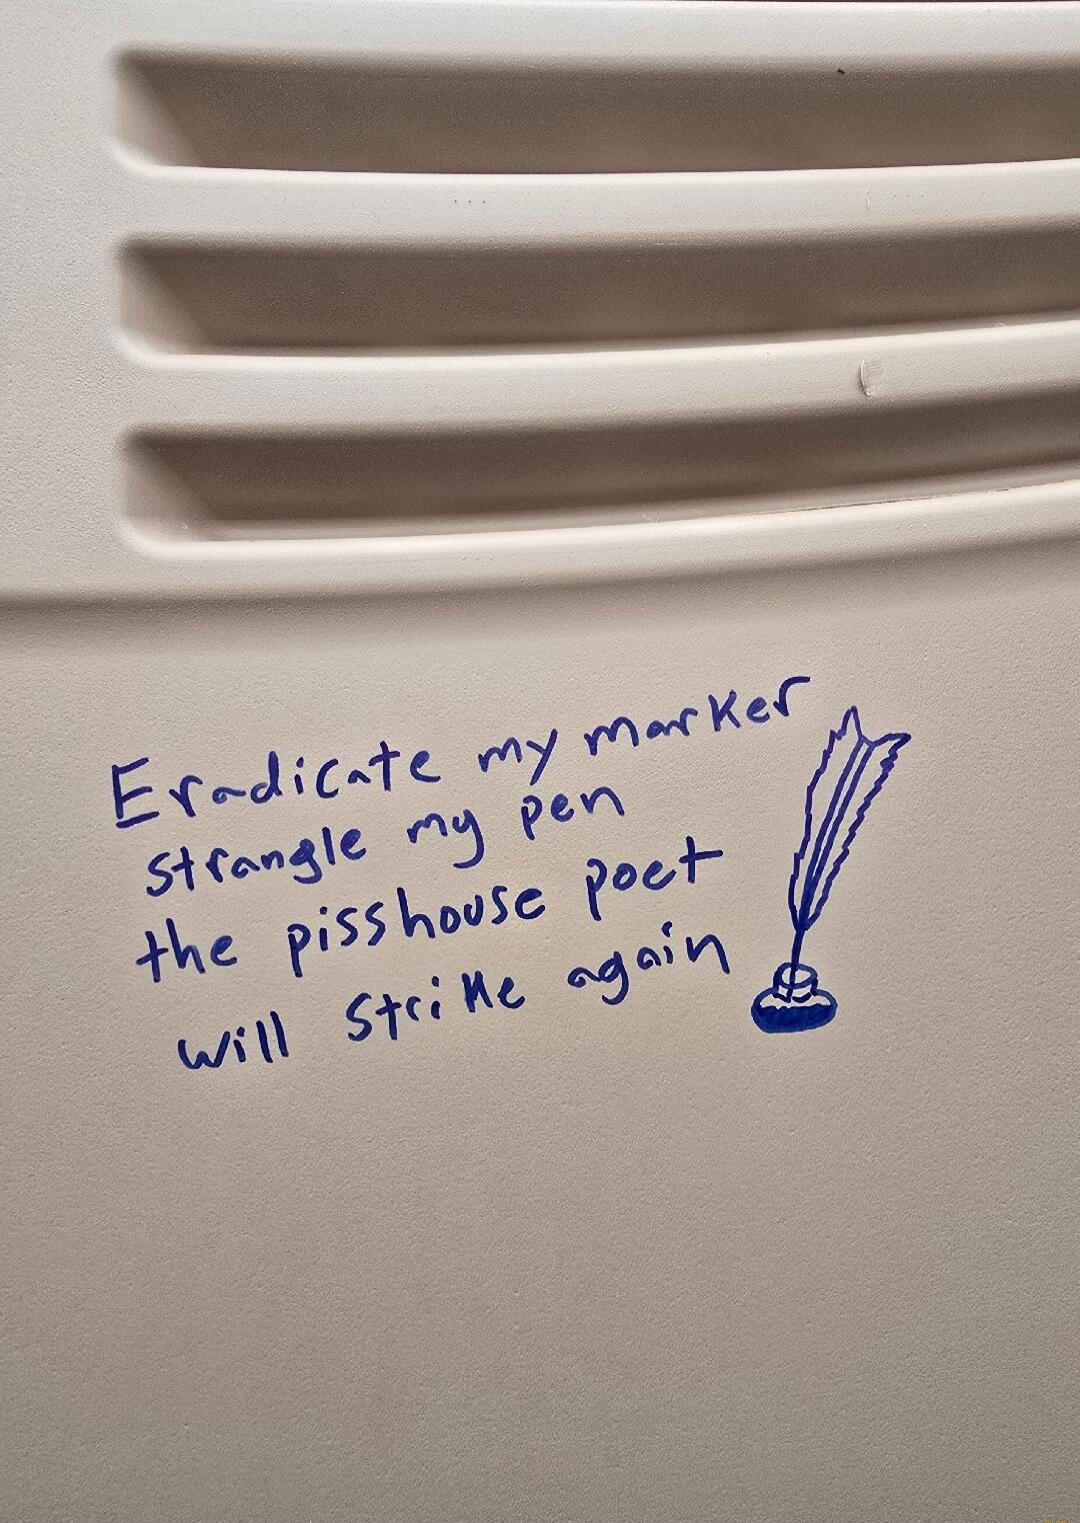 Eradicate my marker
strangle my pen
the pisshouse poet
will strike again